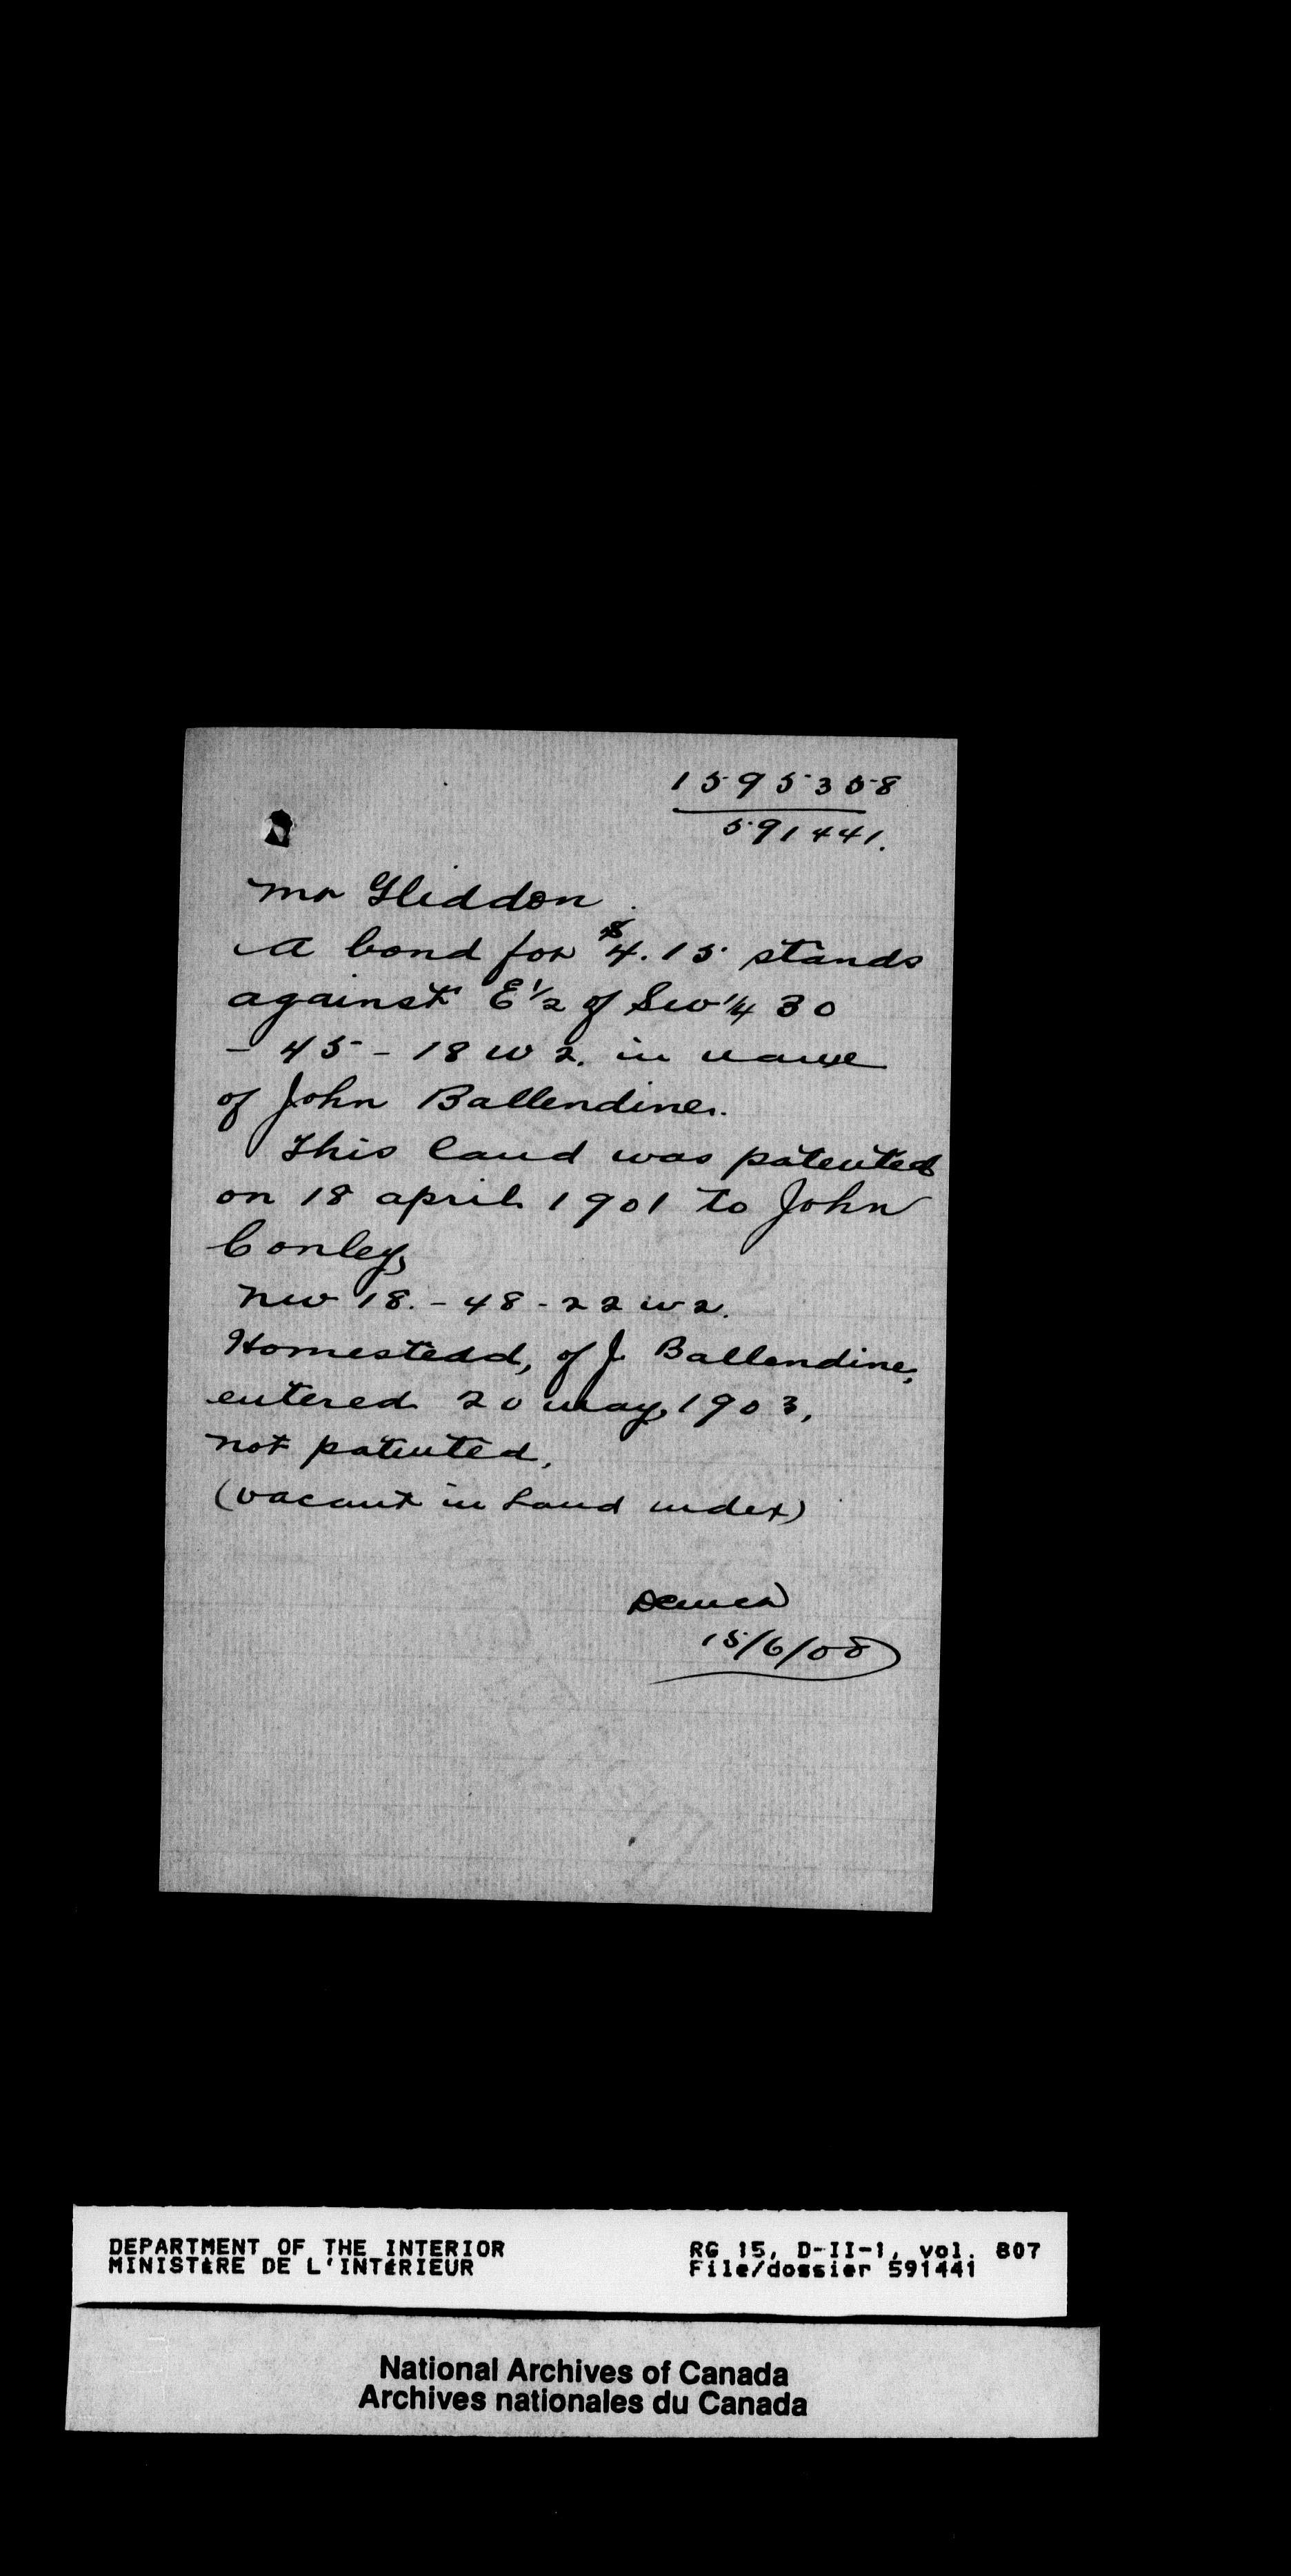 1595358
591441.
Mr Gliddon.
A bond for $4.15 stands
against E½ of Sw¼ 30
- 45 - 18 W 2. in name
of John Ballendine.
This land was patented
on 18 april 1901 to John
Conley,
NW 18. - 48 - 22 W 2.
Homestead, of J. Ballendine,
entered 20 may, 1903,
not patented,
(vacant in Land index)
15/6/08
DEPARTMENT OF THE INTERIOR
MINISTÈRE DE L'INTÉRIEUR
RG 15, D-II-1, vol. 807
File/dossier 591441
National Archives of Canada
Archives nationales du Canada